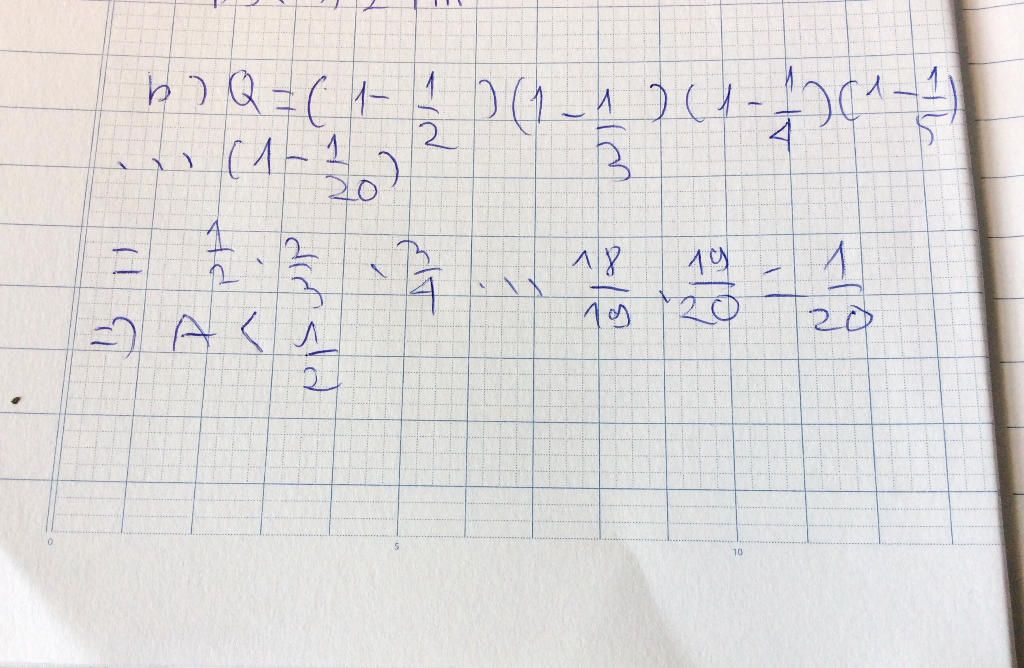 b) Q = (1 - 1/2)(1 - 1/3)(1 - 1/4)(1 - 1/5)
... (1 - 1/20)
= 1/2 . 2/3 . 3/4 ... 18/19 . 19/20 = 1/20
=> A < 1/2
0 5 10